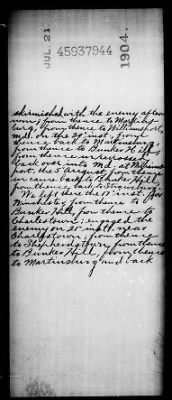 JUL. 21
45937944
1904.
skirmished with the enemy after-
noon; from thence to Martins-
burg, from thence to Williamsport,
Md. on the 25" inst., from
thence back to Martinsburg
from thence to Bunker Hill
from thence we recrossed
back over into Md. at Williams
port the 5 August from thence
we came back to Bunker Hill,
from thence back to Strausburg.
We left there the 17" inst. for
Winchester from thence to
Bunker Hill, from thence to
Charlestown; engaged the
enemy on 21" inst. near
Charlestown, from thence
to Shepherdstown, from thence
to Bunker Hill, from thence
to Martinsburg and back